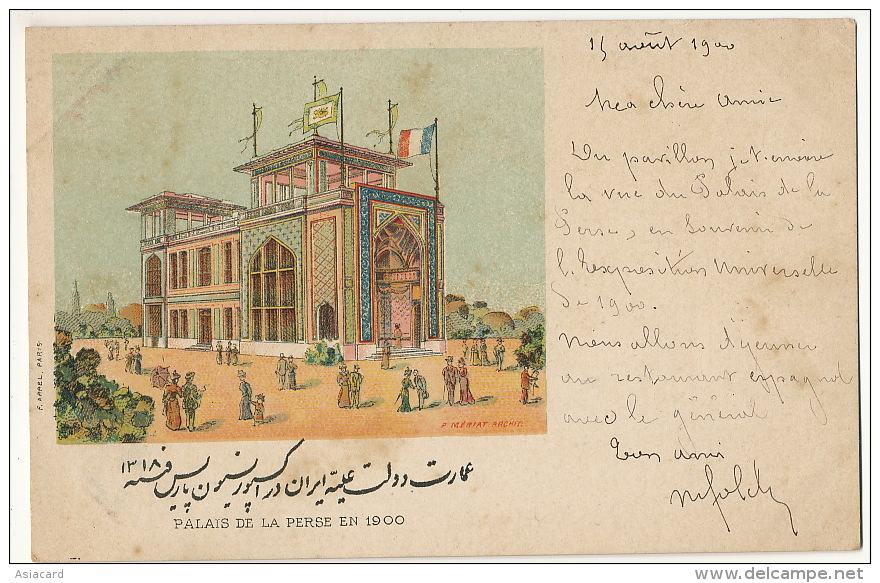 15 août 1900
Ma chère amie
Du pavillon je t'envoie
la vue du Palais de la
Perse, en souvenir de
l'exposition Universelle
de 1900.
Nous allons déjeuner
au restaurant espagnol
avec le général
Ton ami
F. APPEL, PARIS
P. MÉRIAT. ARCHIT.
عمارت دولت علیّه ایران در اکسپوزیسیون پاریس سنه ۱۳۱۸
PALAIS DE LA PERSE EN 1900
Asiacard
www.delcampe.net